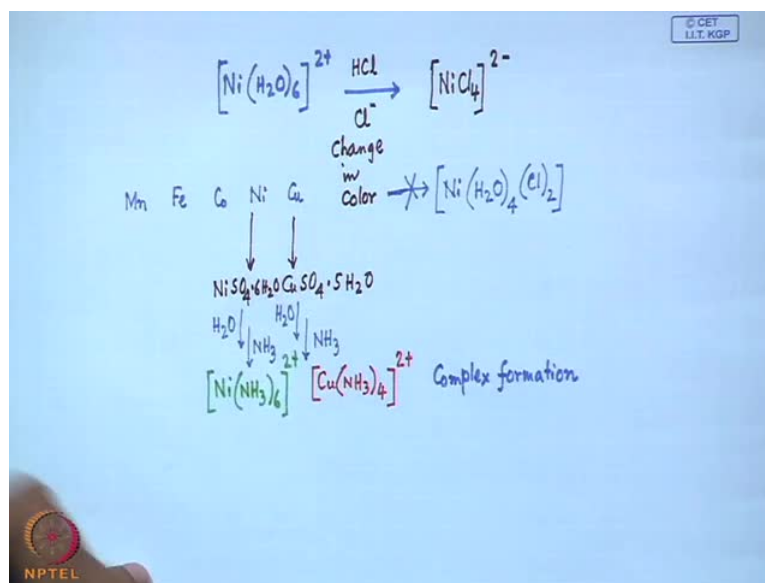 © CET
I.I.T. KGP
[Ni(H2O)6]2+ HCl [NiCl4]2-
Cl-
Change
in
Color [Ni(H2O)4(Cl)2]
Mn Fe Co Ni Cu
NiSO4·6H2O CuSO4·5H2O
H2O NH3 H2O NH3
[Ni(NH3)6]2+ [Cu(NH3)4]2+ Complex formation
NPTEL